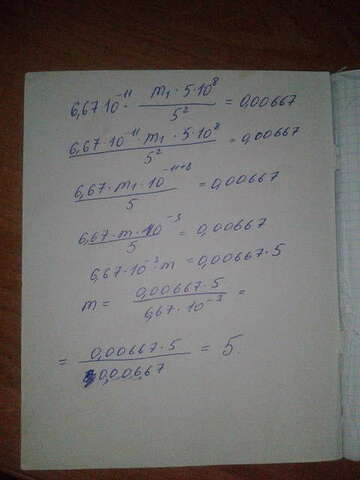 6,67·10⁻¹¹· m₁·5·10⁸ / 5² = 0,00667
6,67·10⁻¹¹·m₁·5·10⁸ / 5² = 0,00667
6,67·m₁·10⁻¹¹⁺⁸ / 5 = 0,00667
6,67·m·10⁻³ / 5 = 0,00667
6,67·10⁻³·m = 0,00667·5
m = 0,00667·5 / 6,67·10⁻³ =
= 0,00667·5 / 0,00667 = 5.